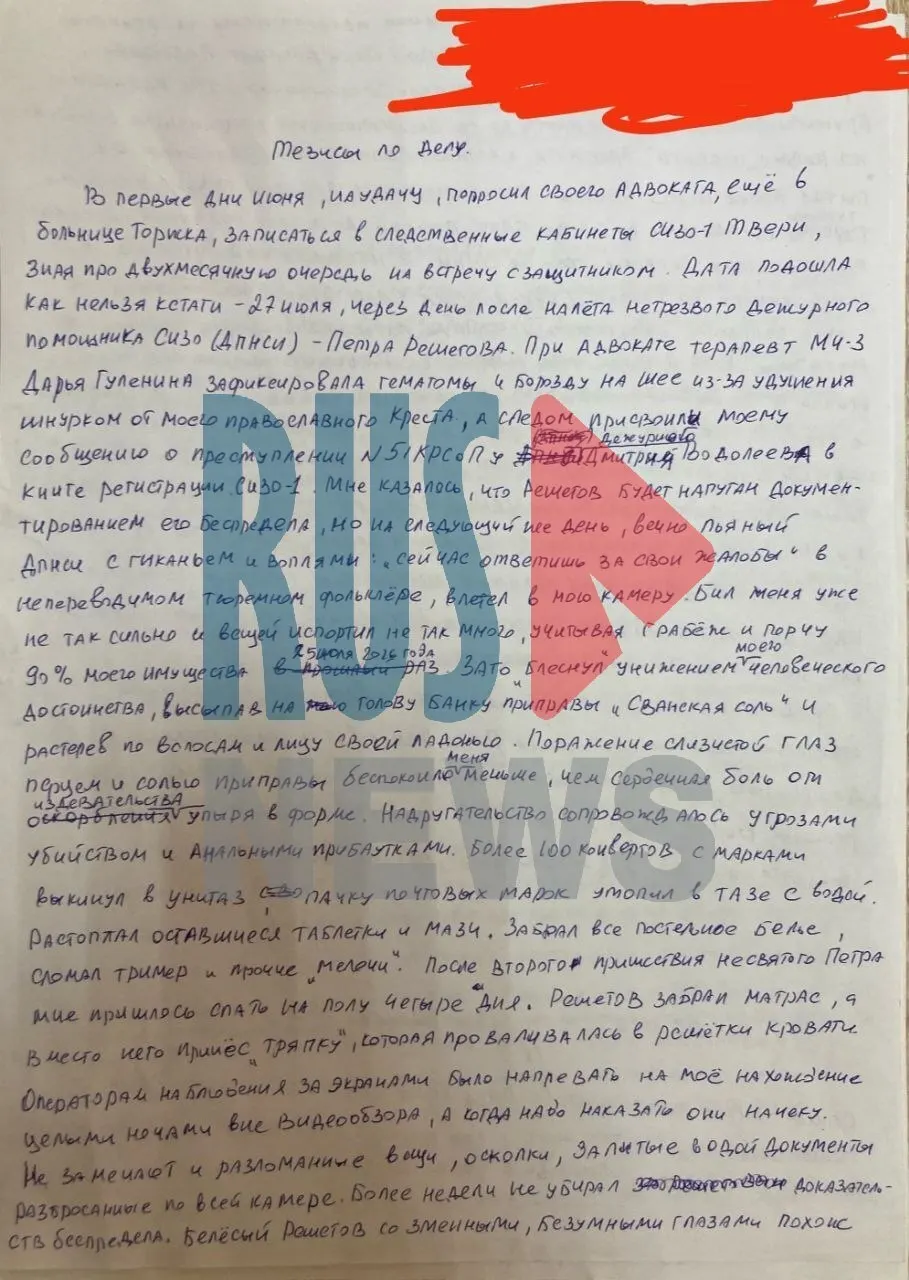 Тезисы по делу.
В первые дни июня, наудачу, попросил своего адвоката, ещё в
больнице Торжка, записаться в следственные кабинеты СИЗО-1 Твери,
зная про двухмесячную очередь на встречу с защитником. Дата подошла
как нельзя кстати - 27 июля, через день после налёта нетрезвого дежурного
помощника СИЗО (ДПНСИ) - Петра Решетова. При адвокате терапевт МЧ-3
Дарья Гуленина зафиксировала гематомы и борозду на шее из-за удушения
шнурком от моего православного креста, а следом присвоили моему
дежурного
сообщению о преступлении №51 КРСоП у Дмитрия Водолеева в
книге регистрации СИЗО-1. Мне казалось, что Решетов будет напуган докумен-
тированием его беспредела, но на следующий же день, вечно пьяный
ДПНСИ с гиканьем и воплями: „сейчас ответишь за свои жалобы" в
непереводимом тюремном фольклёре, влетел в мою камеру. Бил меня уже
не так сильно и вещей испортил не так много, учитывая грабёж и порчу
25 июля 2026 года моего
90% моего имущества в прошлый раз. Зато „блеснул" унижением человеческого
достоинства, высыпав на голову банку приправы „Сванская соль" и
растерев по волосам и лицу своей ладонью. Поражение слизистой глаз
меня
перцем и солью приправы беспокоило меньше, чем сердечная боль от
издевательства
оскорбления упыря в форме. Надругательство сопровождалось угрозами
убийством и анальными прибаутками. Более 100 конвертов с марками
выкинул в унитаз пачку почтовых марок утопил в тазе с водой.
Растоптал оставшиеся таблетки и мази. Забрал все постельное белье,
сломал тример и прочие „мелочи". После второго пришествия несвятого Петра
мне пришлось спать на полу четыре дня. Решетов забрал матрас, а
вместо него принёс „тряпку", которая проваливалась в решётки кровати
Операторам наблюдения за экранами было напревать на моё нахождение
целыми ночами вне видеообзора, а когда надо наказать они начеку.
Не замечают и разломанные вещи, осколки, залитые водой документы
разбросанные по всей камере. Более недели не убирал доказатель-
ств беспредела. Белёсый Решетов со змеиными, безумными глазами похож
RUS
NEWS